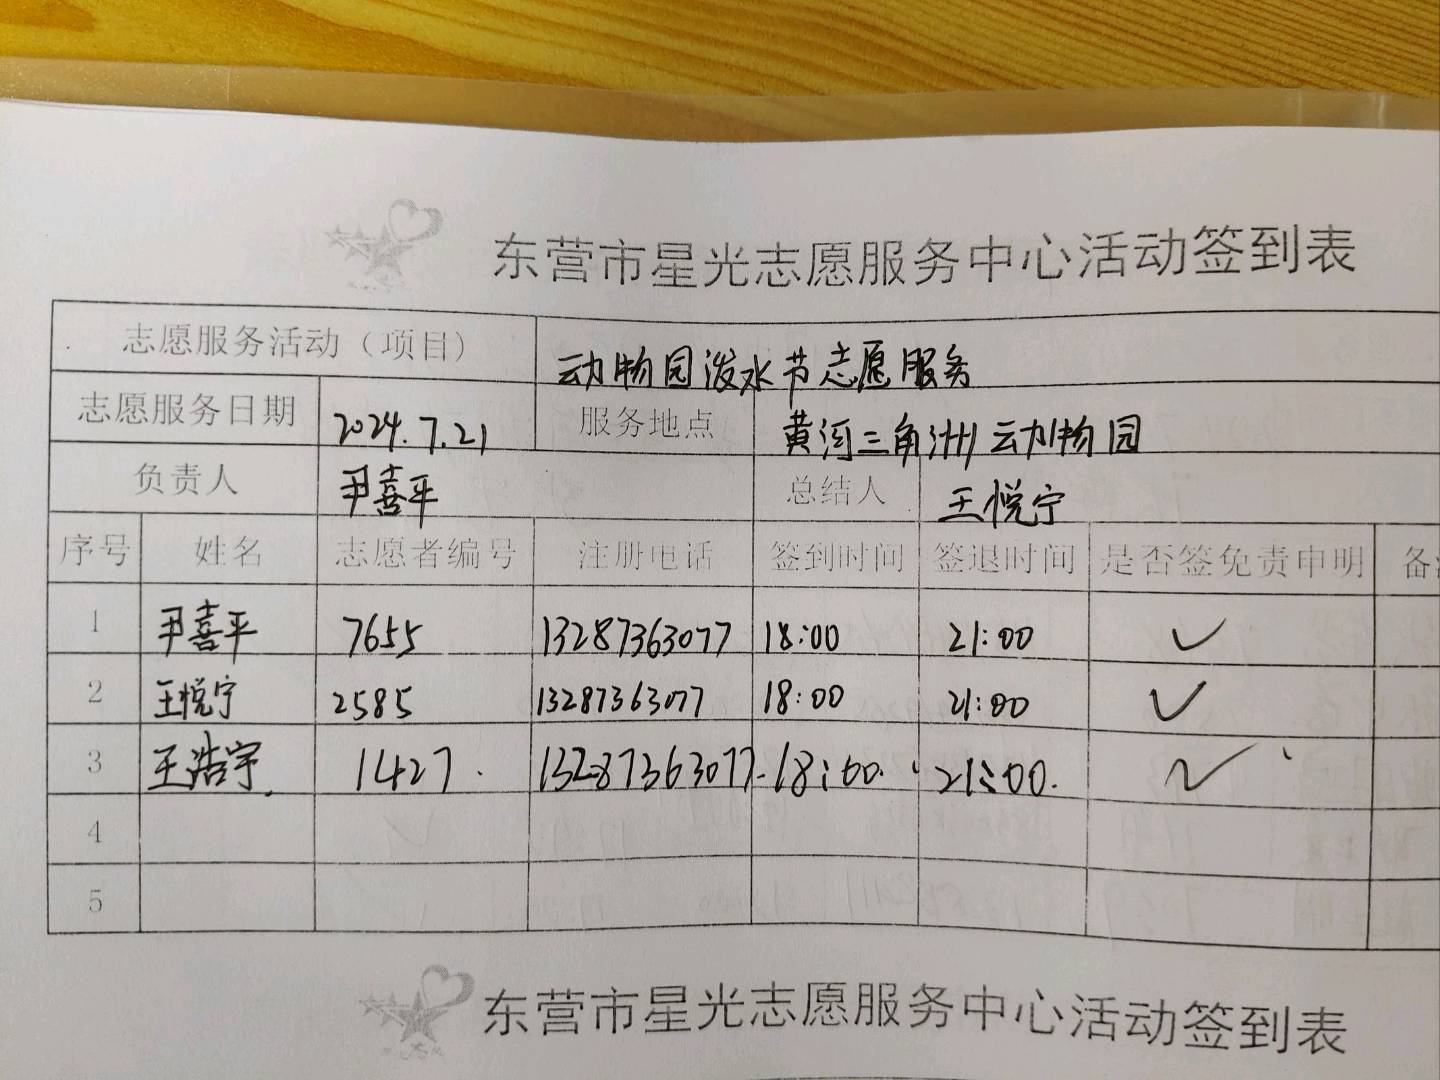 东营市星光志愿服务中心活动签到表
志愿服务活动（项目） 动物园泼水节志愿服务
志愿服务日期 2024.7.21 服务地点 黄河三角洲动物园
负责人 尹喜平 总结人 王悦宁
序号 姓名 志愿者编号 注册电话 签到时间 签退时间 是否签免责申明 备
1 尹喜平 7655 13287363077 18:00 21:00 ✓
2 王悦宁 2585 13287363077 18:00 21:00 ✓
3 王浩宇. 1427. 13287363077. 18:00. 21:00. ✓
4
5
东营市星光志愿服务中心活动签到表